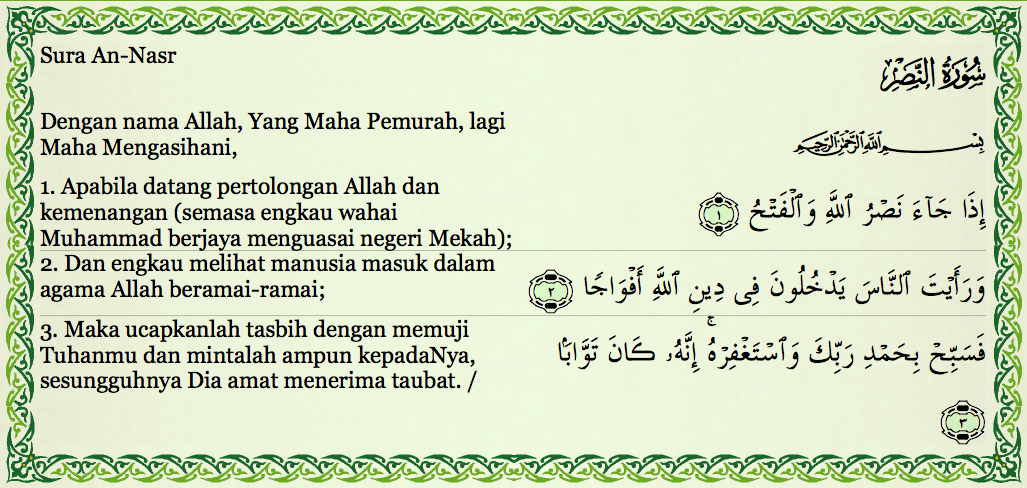 Sura An-Nasr
سُورَةُ النَّصْرِ
Dengan nama Allah, Yang Maha Pemurah, lagi
Maha Mengasihani,
بِسْمِ اللَّهِ الرَّحْمَٰنِ الرَّحِيمِ
1. Apabila datang pertolongan Allah dan
kemenangan (semasa engkau wahai
Muhammad berjaya menguasai negeri Mekah);
إِذَا جَآءَ نَصْرُ ٱللَّهِ وَٱلْفَتْحُ ١
2. Dan engkau melihat manusia masuk dalam
agama Allah beramai-ramai;
وَرَأَيْتَ ٱلنَّاسَ يَدْخُلُونَ فِى دِينِ ٱللَّهِ أَفْوَاجًا ٢
3. Maka ucapkanlah tasbih dengan memuji
Tuhanmu dan mintalah ampun kepadaNya,
sesungguhnya Dia amat menerima taubat. /
فَسَبِّحْ بِحَمْدِ رَبِّكَ وَٱسْتَغْفِرْهُ ۚ إِنَّهُۥ كَانَ تَوَّابًۢا
٣